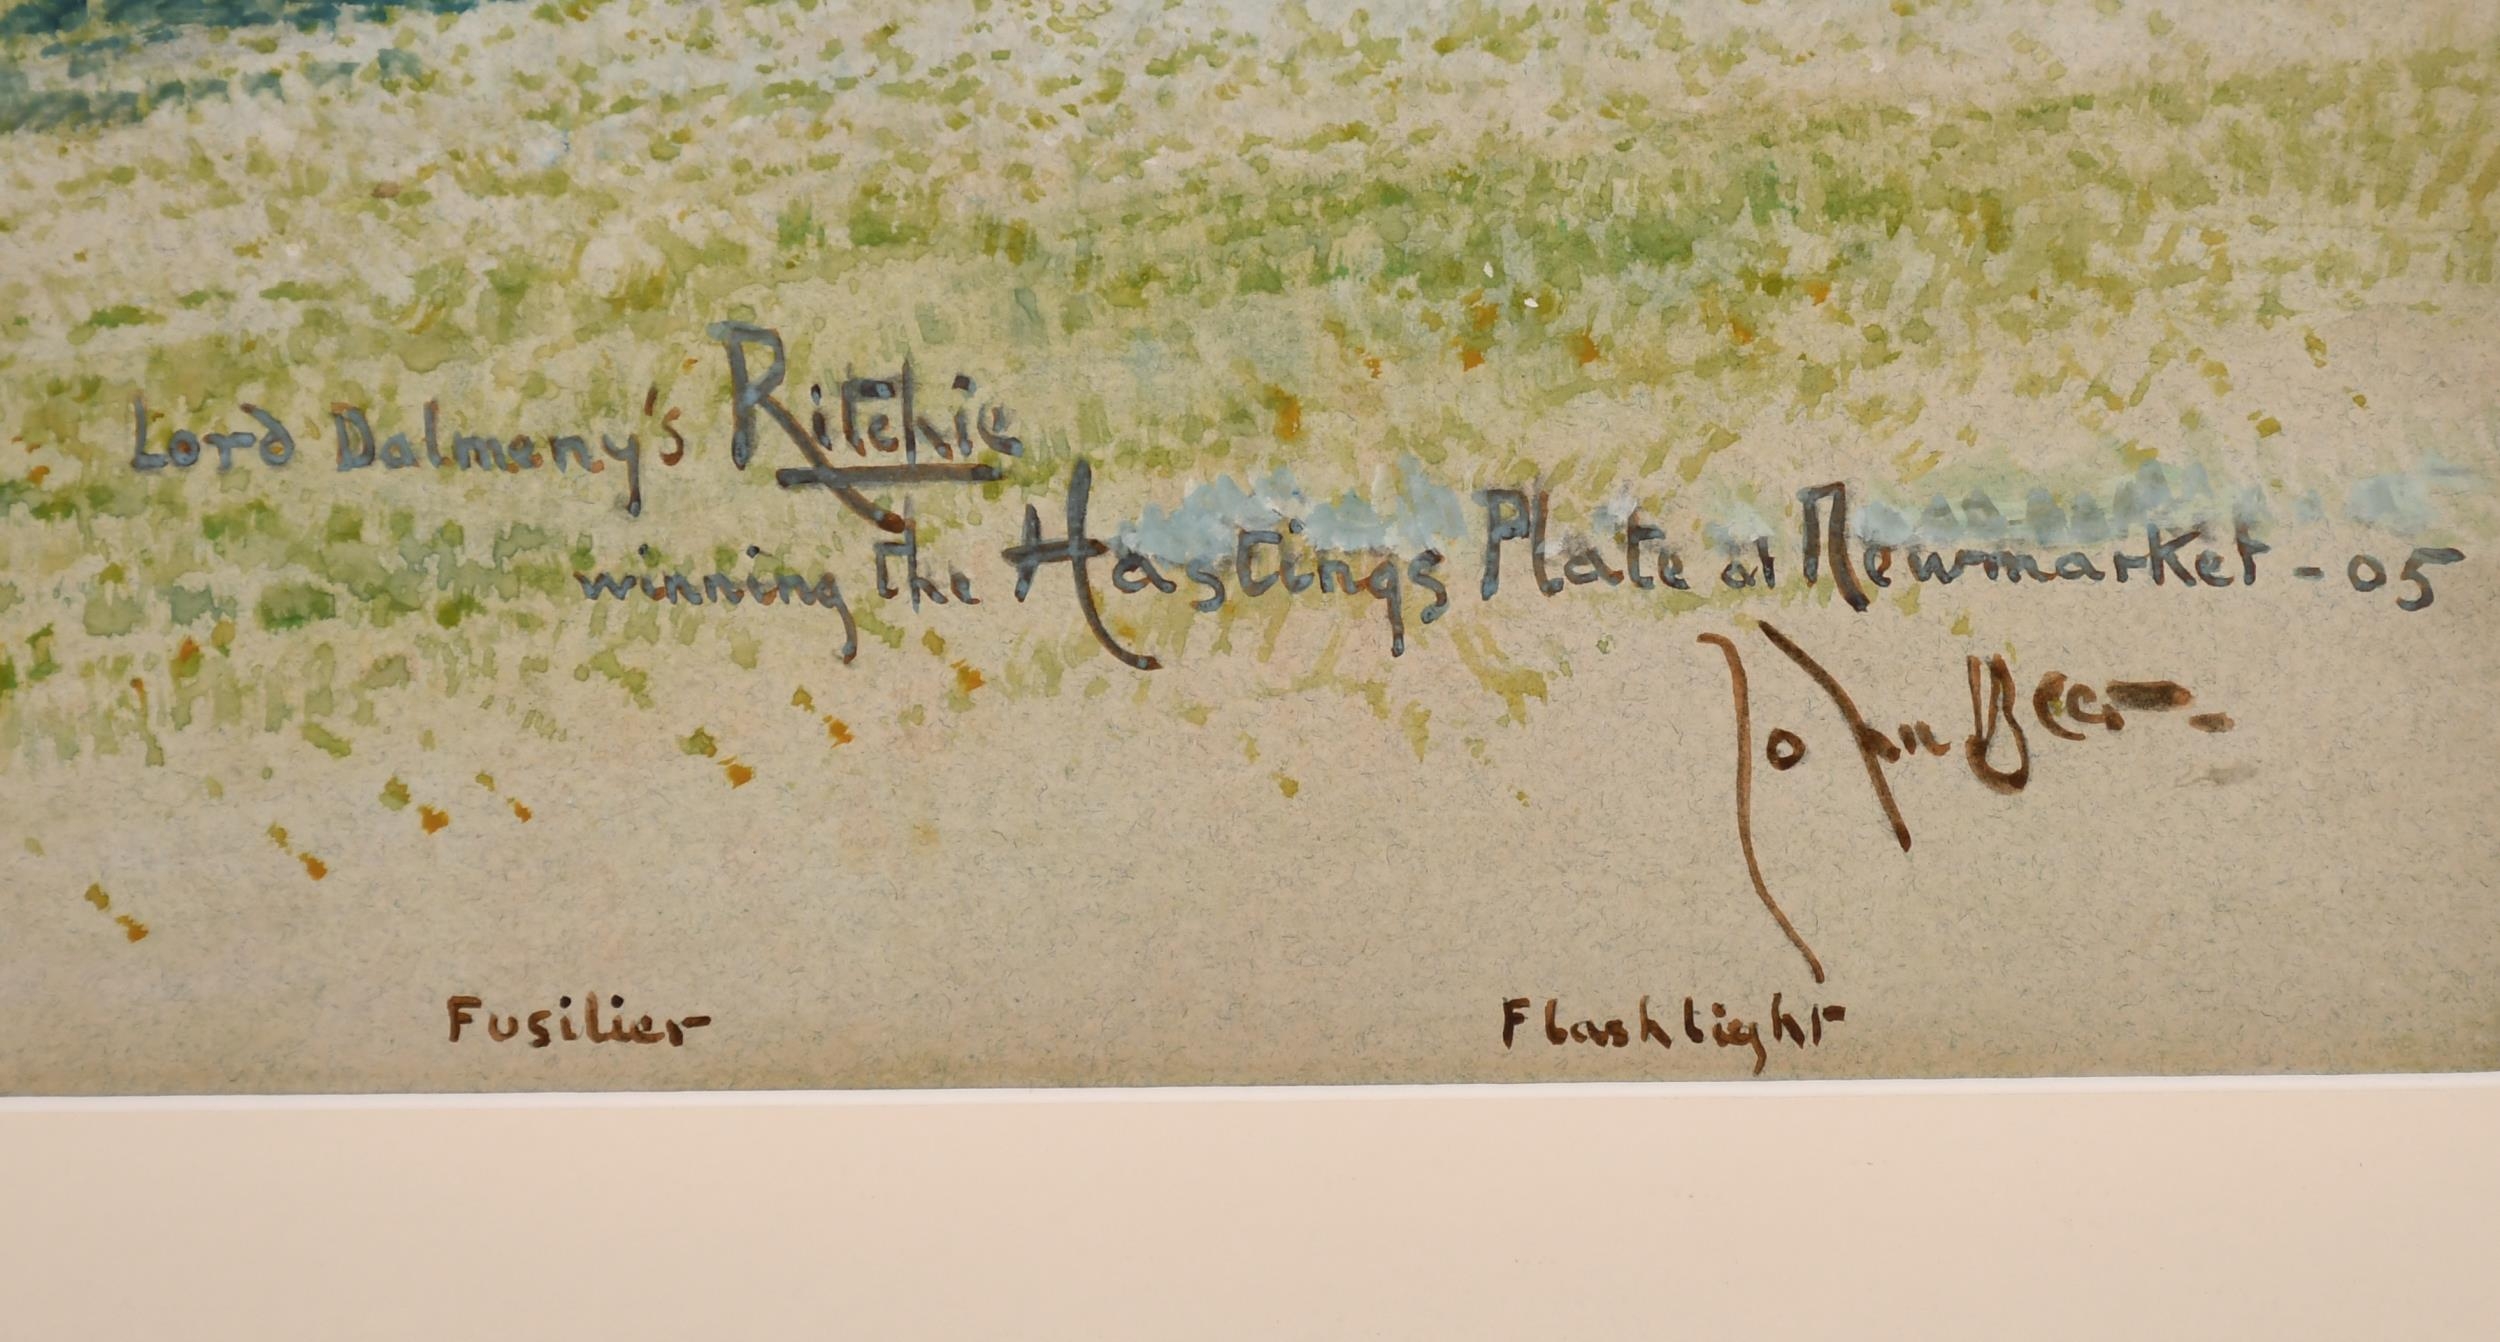 Lord Dalmeny's Ritchie
winning the Hastings Plate at Newmarket - 05
John Beer -
Fusilier Flashlight